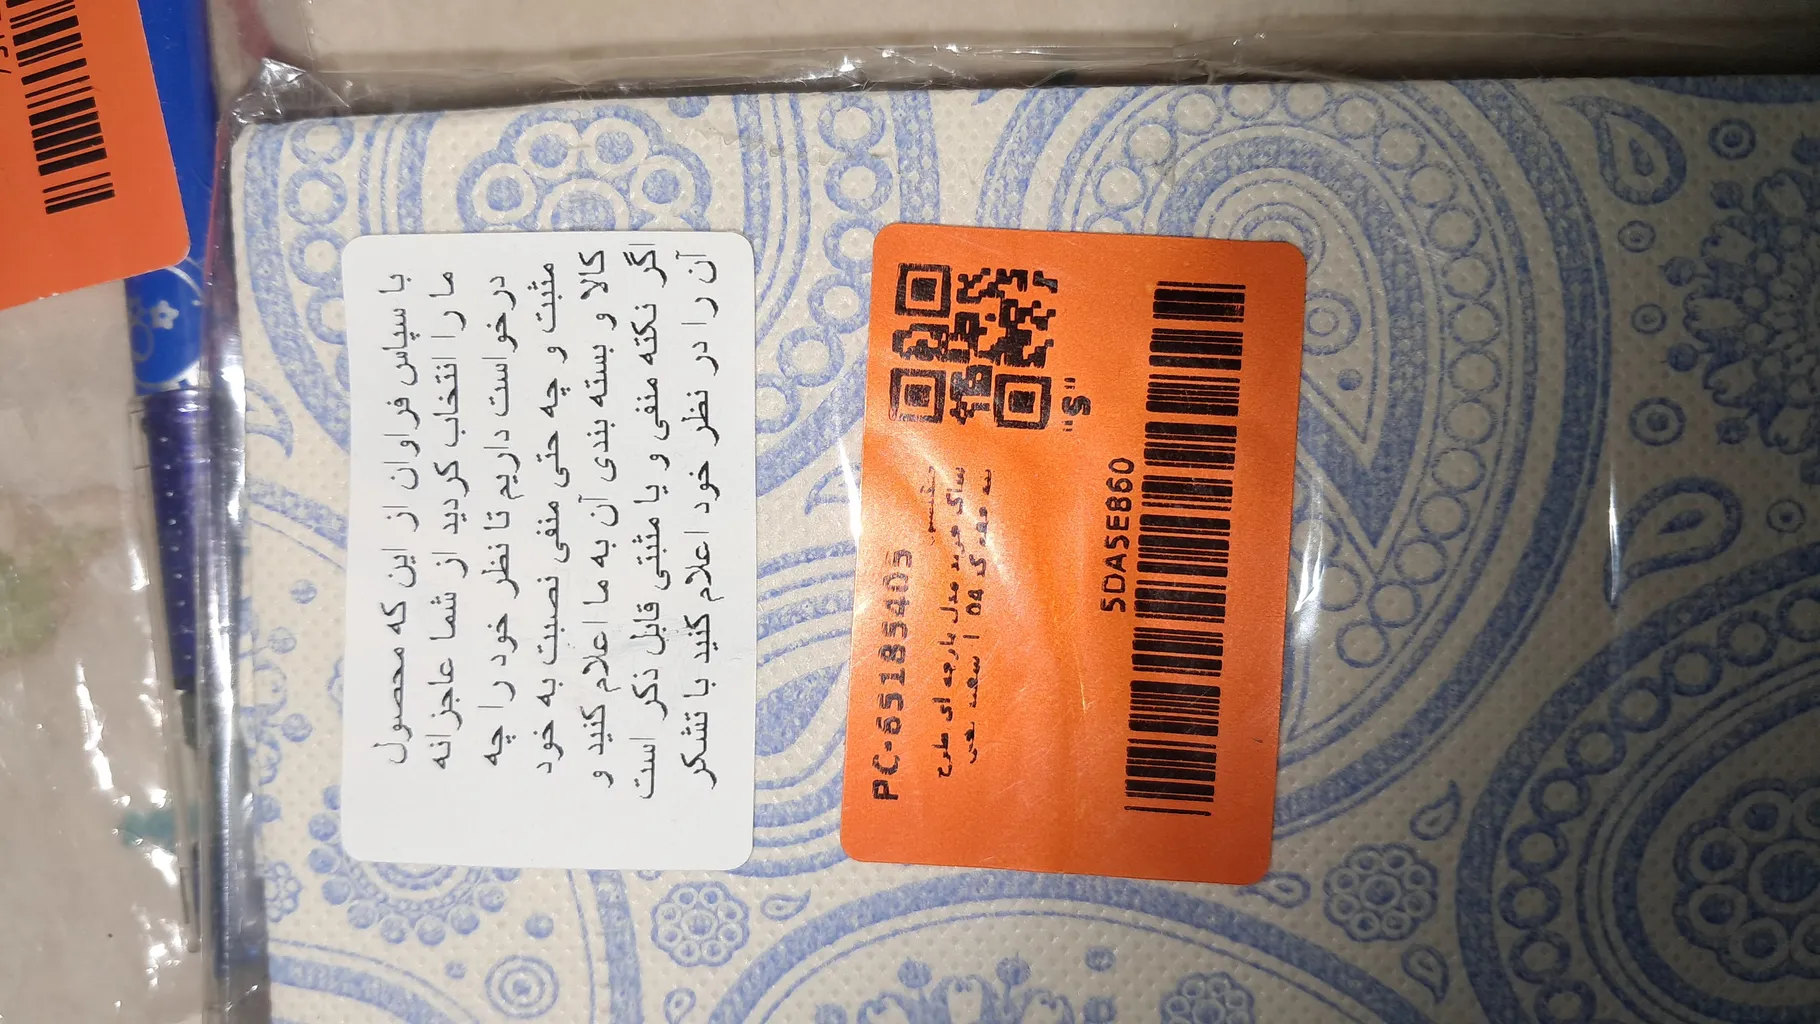 با سپاس فراوان از این که محصول
ما را انتخاب کردید از شما عاجزانه
درخواست داریم تا نظر خود را چه
مثبت و چه حتی منفی نصبت به خود
کالا و بسته بندی آن به ما اعلام کنید و
اگر نکته منفی و یا مثبتی قابل ذکر است
آن را در نظر خود اعلام کنید با تشکر
PC-65185405
ساک خرید مدل پارچه ای طرح
بته جقه کد 04
"S"
5DA5E860